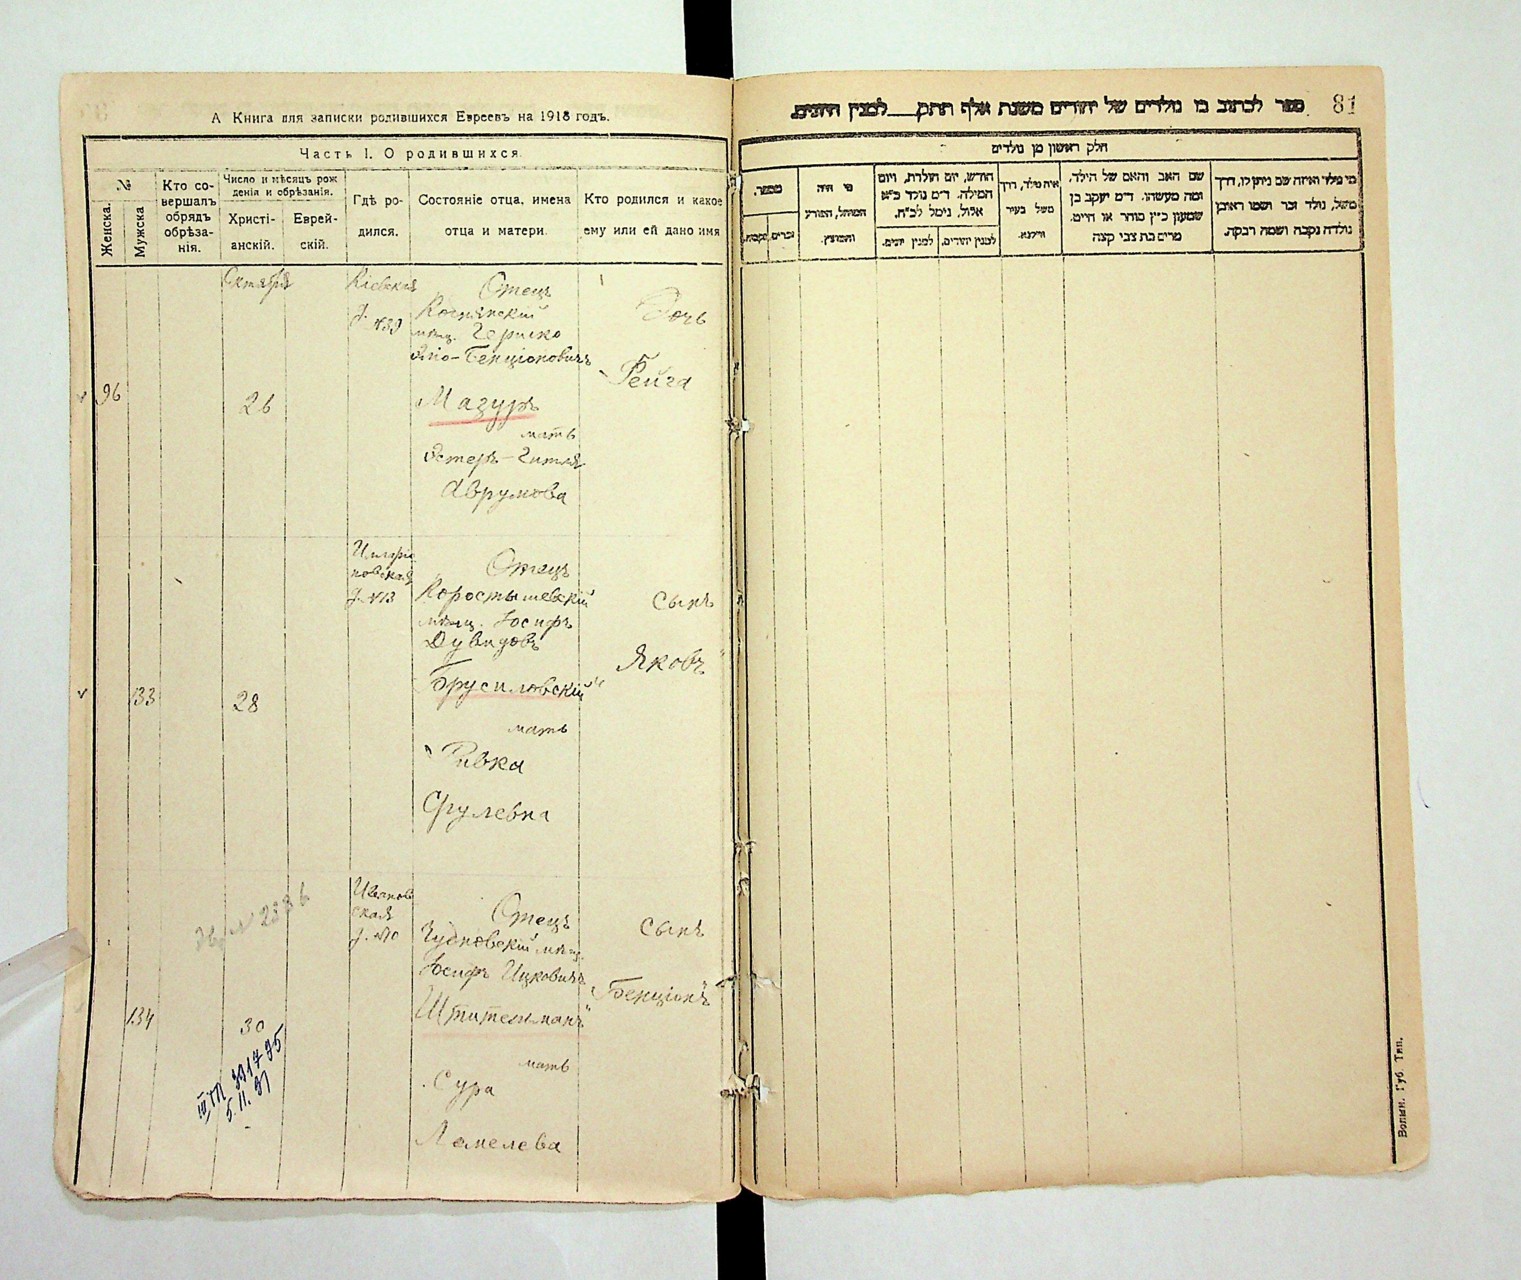 А Книга для записки родившихся Евреевъ на 1918 годъ.
Часть I. О родившихся.
№
Женска.
Мужска
Кто со-
вершалъ
обрядъ
обрѣза-
нія.
Число и мѣсяцъ рож
денія и обрѣзанія.
Христі-
анскій.
Еврей-
скій.
Гдѣ ро-
дился.
Состояніе отца, имена
отца и матери.
Кто родился и какое
ему или ей дано имя
96
Октября
26
Кіевская
д. №39
Отецъ
мѣщ. Гершко
Бенціоновичъ
Мазуръ
мать
Эстеръ-Гитля
Аврумова
Дочь
Рейга
133
28
Иларіо
новская
д. №13
Отецъ
Коростышевскій
мѣщ. Іосифъ
Дувидовъ
Брусиловскій
мать
Ривка
Срулевна
сынъ
Яковъ
134
30
Иванов
ская
д. №10
Отецъ
Чудновскій мѣщ.
Іосифъ Ицковичъ
Штительманъ
мать
Сура
Лемелева
сынъ
Бенціонъ
5.11.91
ספר לכתוב בו נולדים של יהודים משנת אלף תתק___ למנין היונים.
81
חלק ראשון מן נולדים
מספר.
זכרים
נקבות.
מי היה
המוהל, הפורע
והמוצץ.
החודש, יום הולדת, ויום
המילה. ד״מ נולד כ״א
אלול, נימל לכ״ח.
למנין יונים.
למנין יהודים.
איה נולד, דרך
משל בעיר
ווילנא.
שם האב והאם של הילד,
ומה מעשהו. ד״מ יעקב בן
שמעון כ״ץ סוחר או חייט.
מרים בת צבי קצה
מי נולד ואיזה שם ניתן לו, דרך
משל, נולד זכר ושמו ראובן
נולדה נקבה ושמה רבקה.
Волын. Губ. Тип.